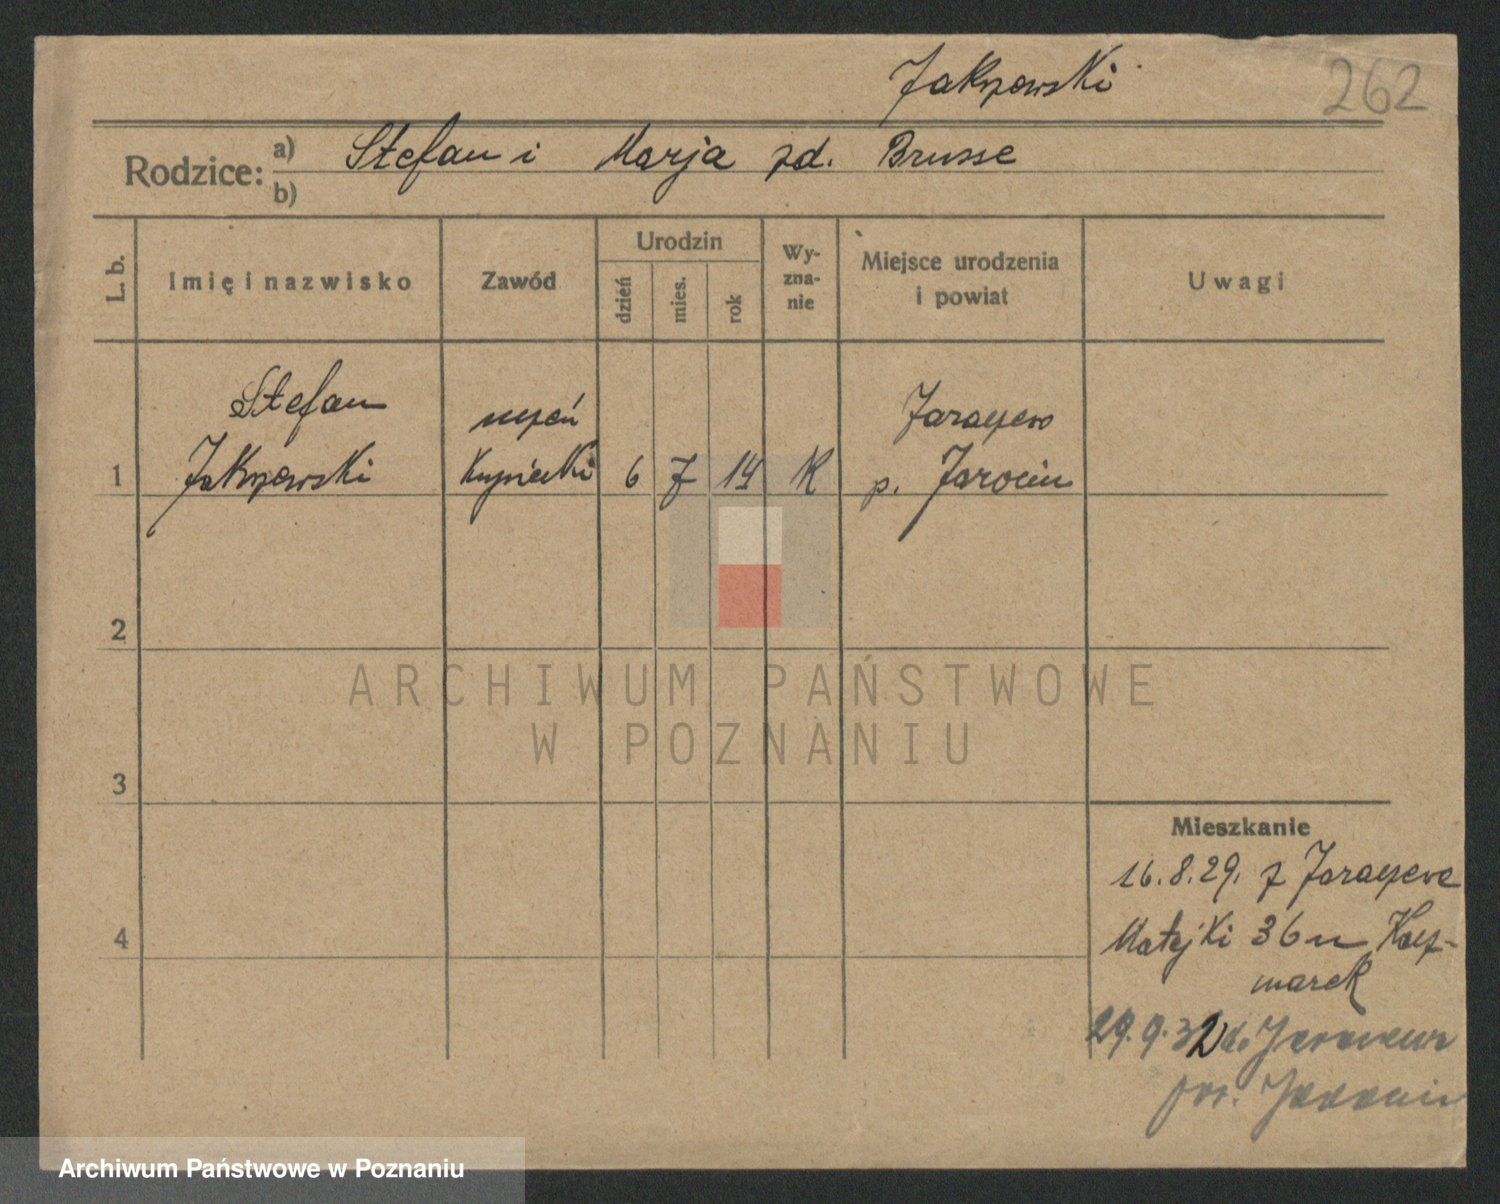 Jakrzewski
262
Rodzice: a) Stefan i Marja zd. Brusse
b)
L. b. Imię i nazwisko Zawód Urodzin dzień mies. rok Wyznanie Miejsce urodzenia i powiat Uwagi
Stefan uczeń Jaraczewo
1 Jakrzewski Kupiecki 6 7 14 K p. Jarocin
2
ARCHIWUM PAŃSTWOWE
W POZNANIU
3
Mieszkanie
16.8.29. z Jaraczewa
4 Matejki 36 u Kacz-
marek
29.9.32 do Jaraczewa
pow. Jarocin
Archiwum Państwowe w Poznaniu